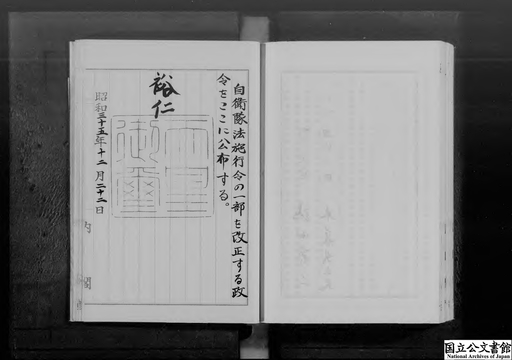 自衛隊法施行令の一部を改正する政
令をここに公布する。
裕仁
天皇
御璽
昭和三十五年十二月二十二日
内閣
国立公文書館
National Archives of Japan